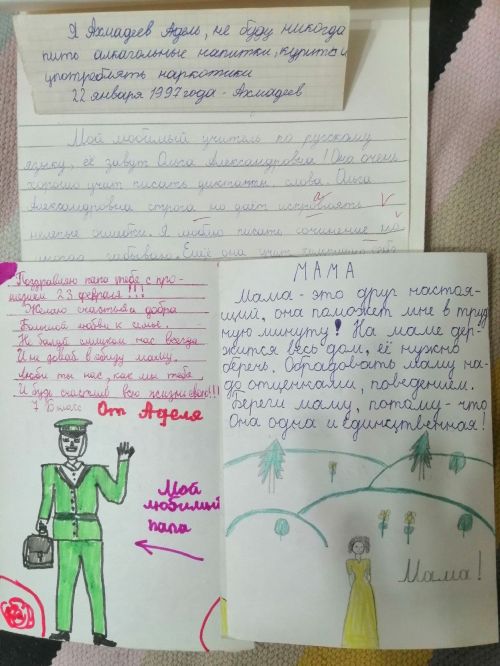 Я Ахмадеев Адель, не буду никогда
пить алкагольные напитки, курить и
употреблять наркотики
22 января 1997 года - Ахмадеев
Мой любимый учитель по русскому
языку, её завут Ольга Александровна! Она очень
хорошо учит писать диктанты, слова. Ольга
Александровна строга но даёт исправлять
нелепые ошибки. Я люблю писать сочинение
забываю. Ещё она учит
Поздравляю папа тебя с про-
шедшем 23 февраля!!!
Желаю счастья и добра
Большой любви к семье.
Не балуй слишком нас всегда
И не давай в обиду маму.
Люби ты нас, как мы тебя
И будь счастлив всю жизнь свою!!!
7 Б класс От Аделя
Мой
любимый
папа
МАМА
Мама - это друг настоя-
щий, она поможет мне в труд
ную минуту! На маме дер-
жится весь дом, её нужно
беречь. Обрадовать маму на-
до отценками, поведением.
Береги маму, потому-что
Она одна и единственная!
Мама!